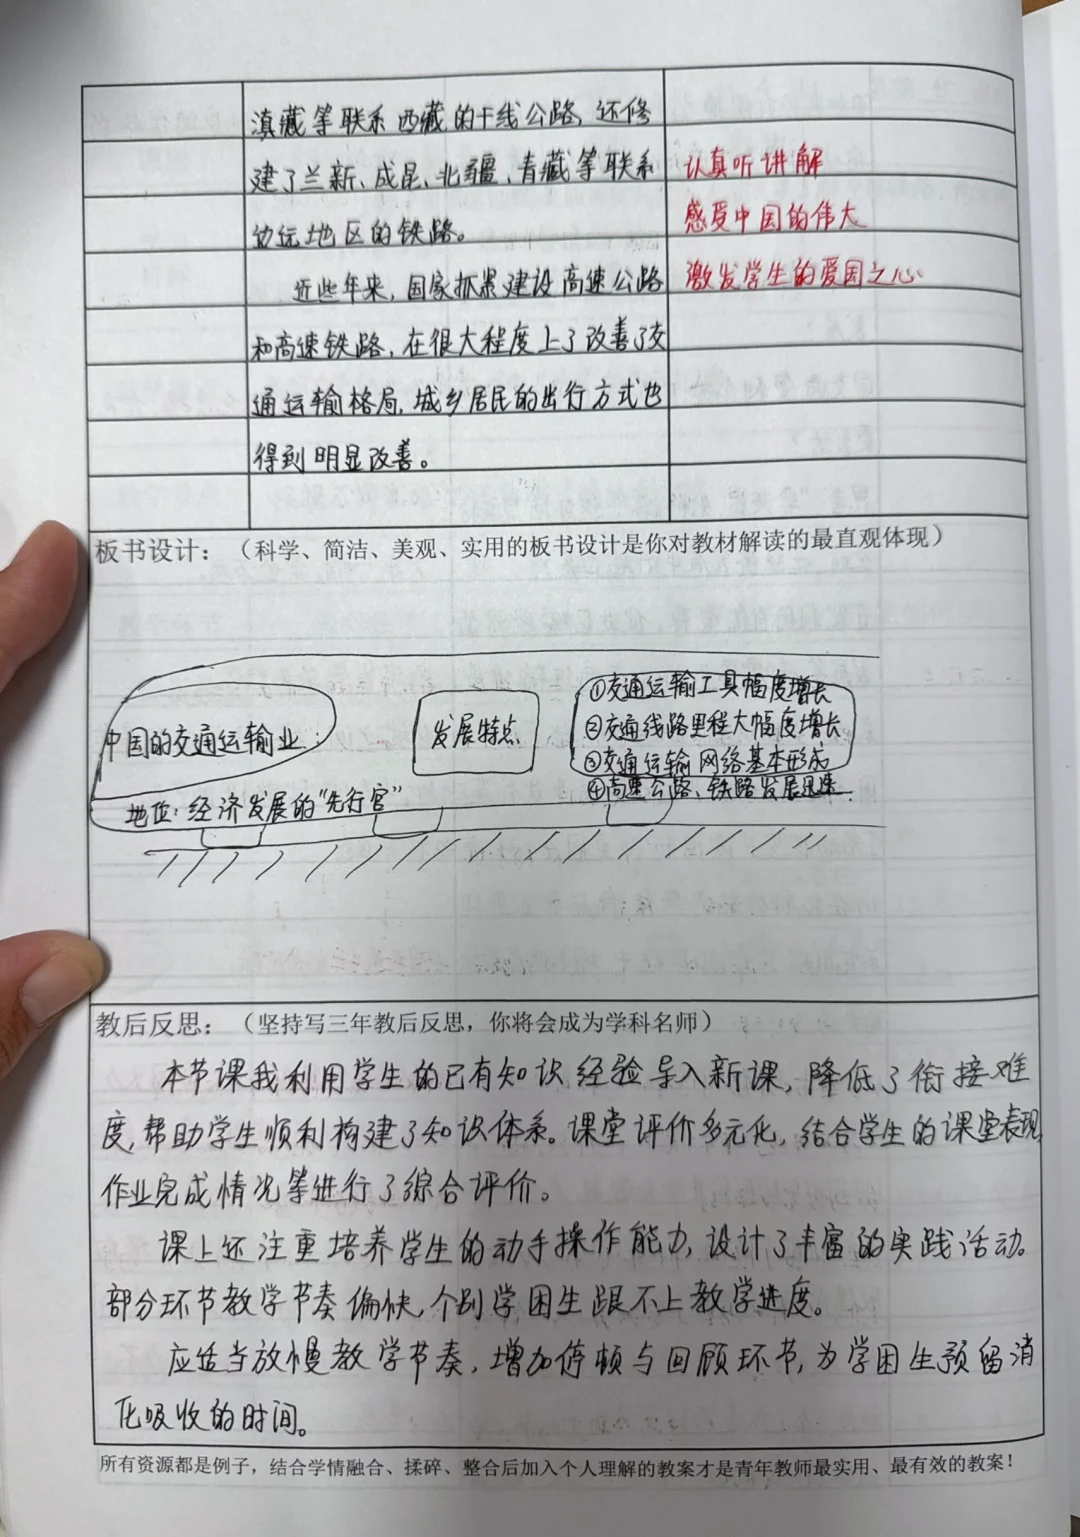 滇藏等联系西藏的干线公路，还修
建了兰新、成昆、北疆、青藏等联系
边远地区的铁路。
近些年来，国家抓紧建设高速公路
和高速铁路，在很大程度上了改善了交
通运输格局，城乡居民的出行方式也
得到明显改善。
认真听讲解
感受中国的伟大
激发学生的爱国之心
板书设计：（科学、简洁、美观、实用的板书设计是你对教材解读的最直观体现）
中国的交通运输业
发展特点
①交通运输工具幅度增长
②交通线路里程大幅度增长
③交通运输网络基本形成
④高速公路、铁路发展迅速
地位：经济发展的“先行官”
教后反思：（坚持写三年教后反思，你将会成为学科名师）
本节课我利用学生的已有知识经验导入新课，降低了衔接难
度，帮助学生顺利构建了知识体系。课堂评价多元化，结合学生的课堂表现
作业完成情况等进行了综合评价。
课上还注重培养学生的动手操作能力，设计了丰富的实践活动。
部分环节教学节奏偏快，个别学困生跟不上教学进度。
应适当放慢教学节奏，增加停顿与回顾环节，为学困生预留消
化吸收的时间。
所有资源都是例子，结合学情融合、揉碎、整合后加入个人理解的教案才是青年教师最实用、最有效的教案！